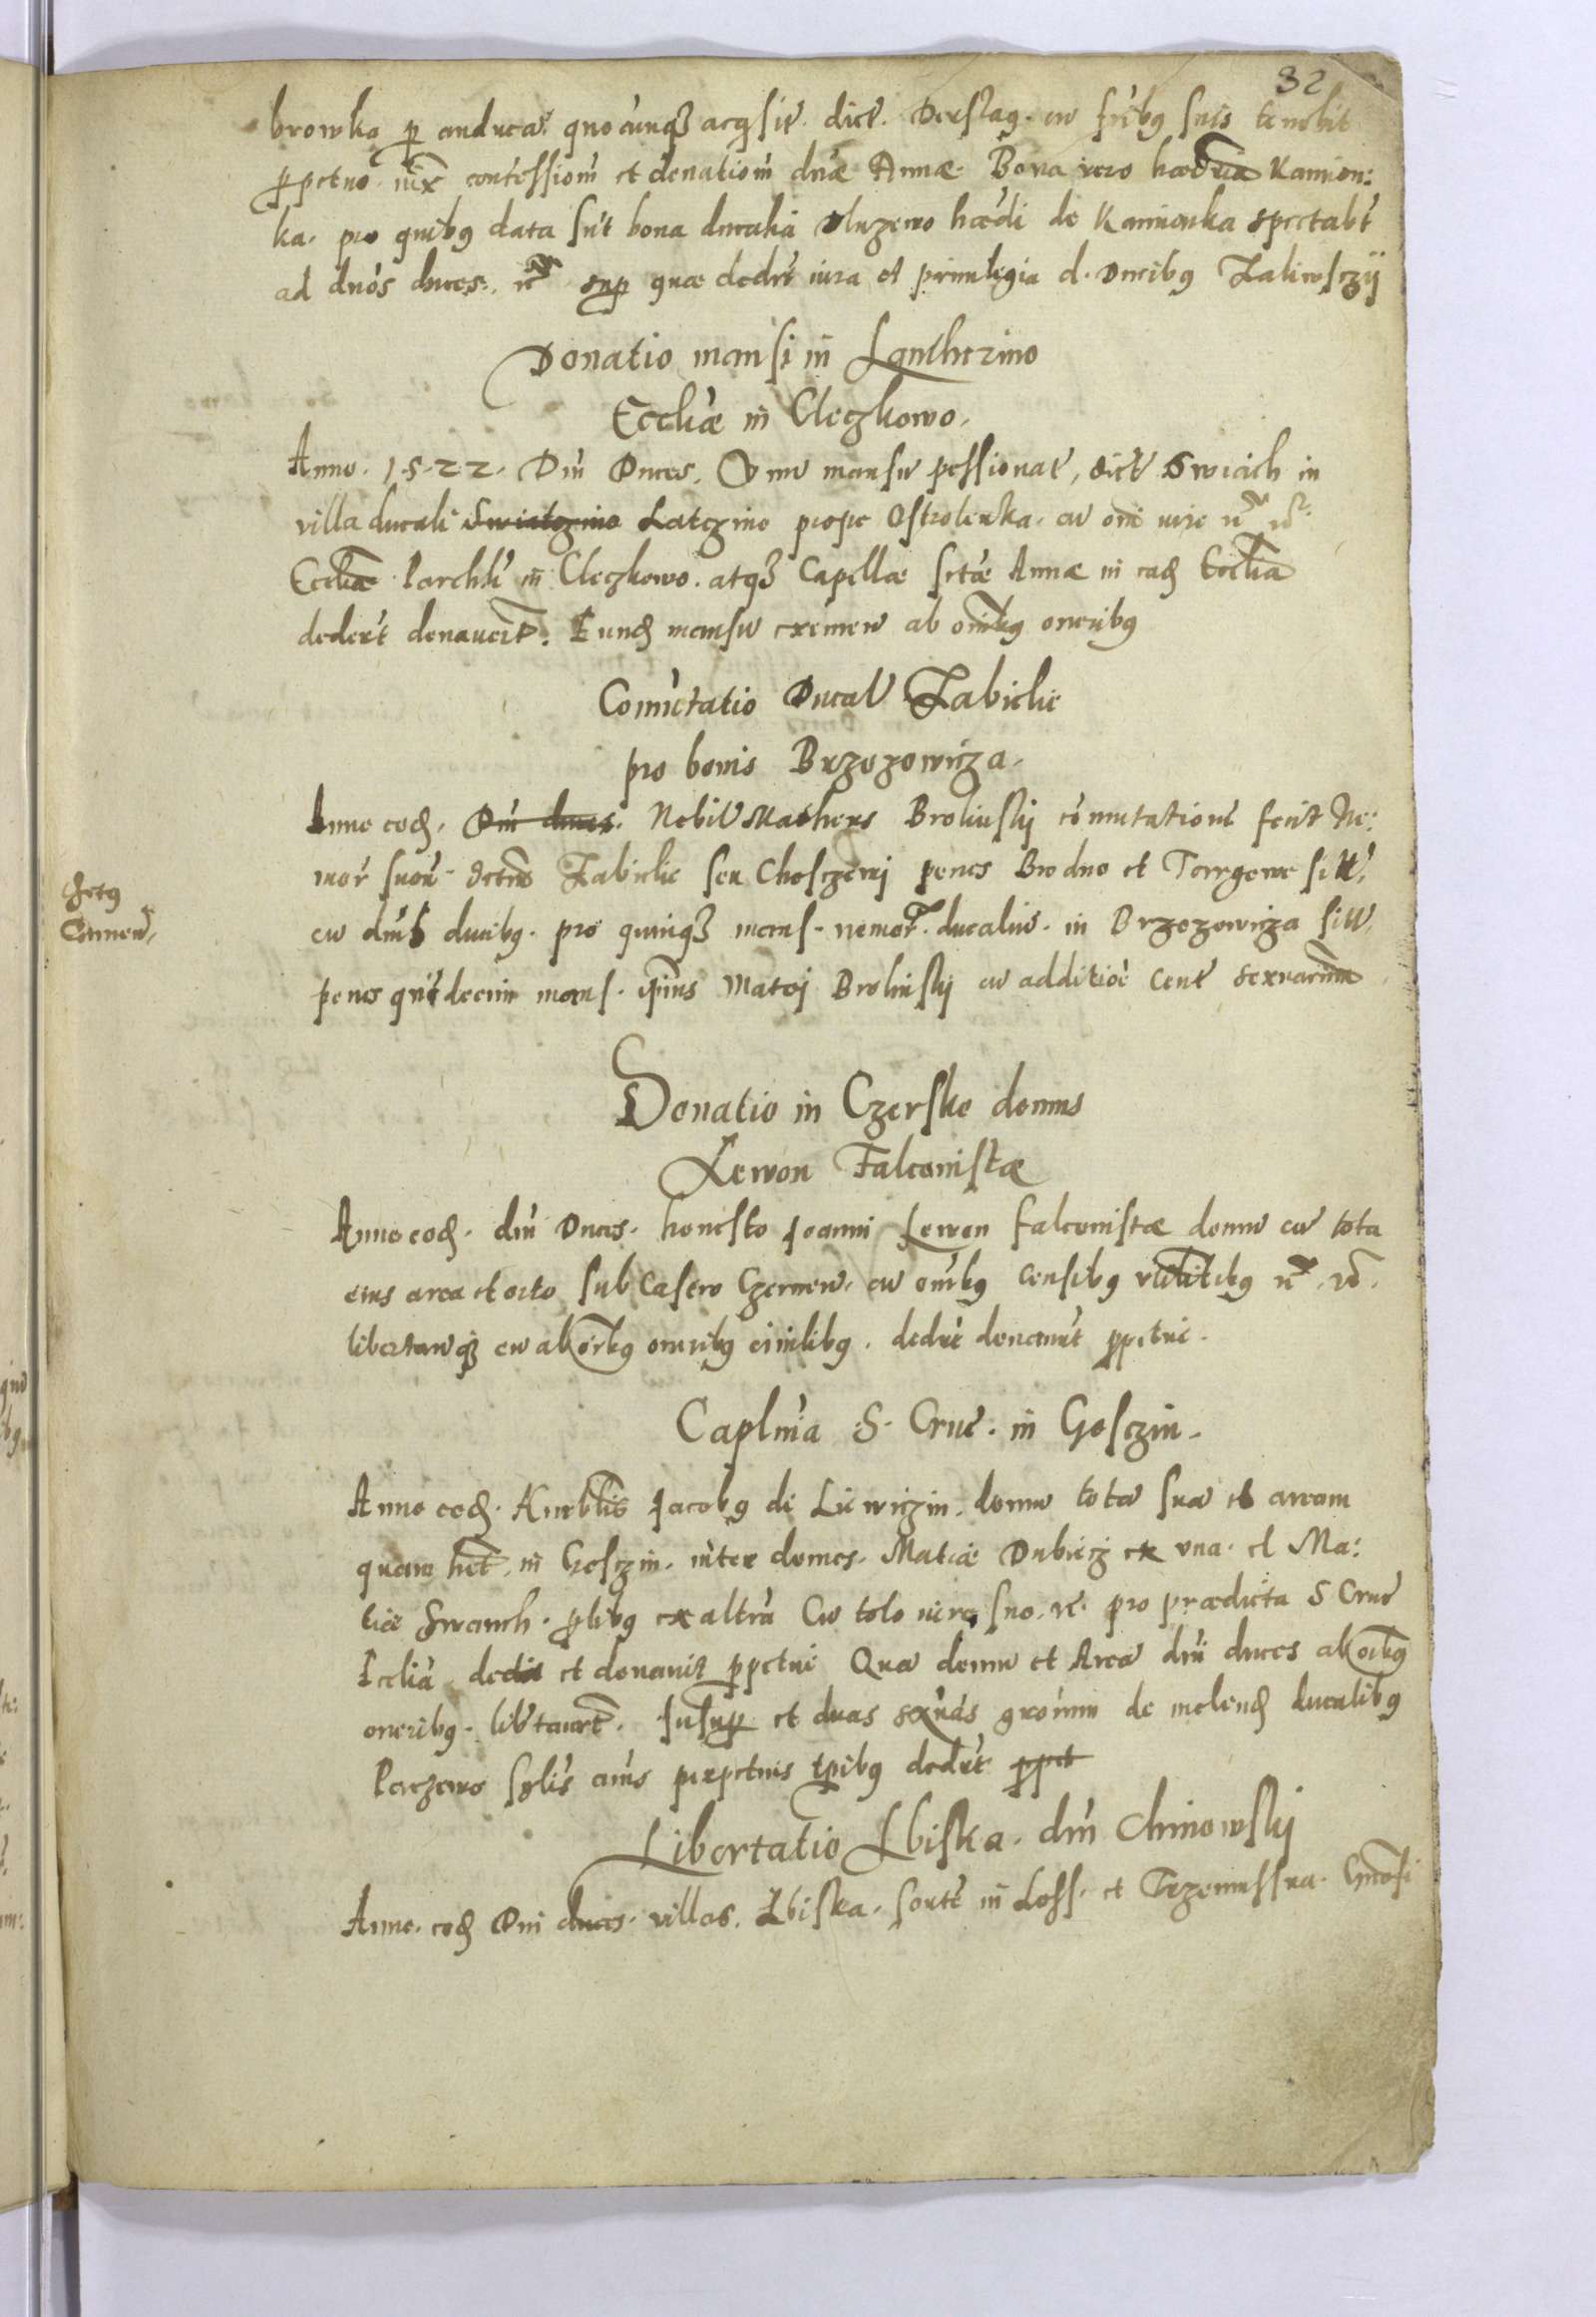 32
browka p anducat quocunqȝ acqsit. dict. Derslag. cu fribg suis tenebit
ppetuo. iux concessiom et donatiom dnæ Annæ. Bona vero hædria Kamion:
ka. pro quibg data sut bona ducalia Dluzewo hædi de Kamionka spectabt
ad dnos duces. rc sup quæ dedrt iura et priuilegia d. Ducibg Zaliwsczÿ
Donatio mansi in
Eccliæ in Cleczkowo.
Anno. 1522. Dni Duces. Vnu mansu possionat, dict Swiach in
villa ducali Swiatczino Latczino prope Ostrolenka. cu oni iure rc rc.
Eccliæ Parchli in Cleczkowo. atqȝ Capellæ sctæ Annæ in ead Ecclia
dedert donauert. Eund mansu exemen ab omibg oneribg
Comutatio Ducal Zabiclie
pro bonis Brzozowicza.
Anno eod. Dni duces. Nobil Mathers Broliuskj comutatione fecit Ne:
mor suor dctm Zabiclie seu Chosczewj penes Brodno et Targowe sitt.
cu dnis ducibg. pro quinqȝ mans. nemor. ducaliu. in Brzozowicza sitt.
penes quidecim mans. ipius Matej Broliuskj cu additioe Cent sexnarum
Donatio in Czersko domus
Lewon Falconistæ
Anno eod. dni Duces. honesto Joanni Lewon falconistæ domu cu tota
eius area et orto sub Castro Czernen. cu omibg censibg vtilitibg rc. rc.
libertanqȝ eu ab oibg oneribg ciuilibg. dedrt donarut ppetue.
Caplnia S. Cruc. in Gosczin.
Anno eod. Hurblis Jacobg de Liewiczin. domu tota sua et aream
quam het. in Gosczin. inter domos. Matiæ Dubiecz ex vna. et Ma:
tiæ Swanch. plibg ex altra Cu toto iure suo. rc. pro prædicta S Cruc
Ecclia dedit et donauit ppetue Qua domu et Area dni duces ab oibg
oneribg. libtauert. Insup et duas sexnas granum de molend ducalibg
perpetuis tpibg dedrt ppet
Libertatio Lbiska. dni Chinowskj
Anno. eod Dni duces. villas. Lbiska. sorte in Loss. et Trzemussna. Gnosi